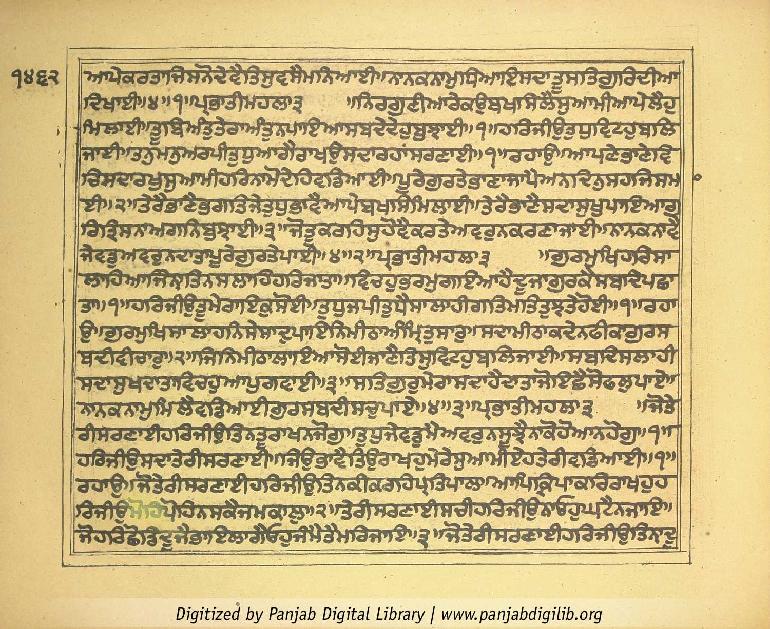 ੧੪੬੨
ਆਪੇਕਰਤਾਜਿਸਨੋਦੇਵੈਤਿਸੁਵਸੈਮਨਿਆਈ॥ਨਾਨਕਨਾਮੁਧਿਆਇਸਦਾਤੂਸਤਿਗੁਰਿਦੀਆ
ਦਿਖਾਈ॥੪॥੧॥ਪ੍ਰਭਾਤੀਮਹਲਾ੩ ॥ਨਿਰਗੁਣੀਆਰੇਕਉਬਖਸਿਲੈਸੁਆਮੀਆਪੇਲੈਹੁ
ਮਿਲਾਈ॥ਤੂਬਿਅੰਤੁਤੇਰਾਅੰਤੁਨਪਾਇਆਸਬਦੇਦੇਹੁਬੁਝਾਈ॥੧॥ਹਰਿਜੀਉਤੁਧੁਵਿਟਹੁਬਲਿ
ਜਾਈ॥ਤਨੁਮਨੁਅਰਪੀਤੁਧੁਆਗੈਰਾਖਉਸਦਾਰਹਾਂਸਰਣਾਈ॥੧॥ਰਹਾਉ॥ਆਪਣੇਭਾਣੇਵਿ
ਚਿਸਦਾਰਖੁਸੁਆਮੀਹਰਿਨਾਮੋਦੇਹਿਵਡਿਆਈ॥ਪੂਰੇਗੁਰਤੇਭਾਣਾਜਾਪੈਅਨਦਿਨੁਸਹਜਿਸਮਾ
ਈ॥੨॥ਤੇਰੈਭਾਣੈਭਗਤਿਜੇਤੁਧੁਭਾਵੈਆਪੇਬਖਸਿਮਿਲਾਈ॥ਤੇਰੈਭਾਣੈਸਦਾਸੁਖੁਪਾਇਆਗੁ
ਰਿਤ੍ਰਿਸਨਾਅਗਨਿਬੁਝਾਈ॥੩॥ਜੋਤੂਕਰਹਿਸੁਹੋਵੈਕਰਤੇਅਵਰੁਨਕਰਣਾਜਾਈ॥ਨਾਨਕਨਾਵੈ
ਜੇਵਡੁਅਵਰੁਨਦਾਤਾਪੂਰੇਗੁਰਤੇਪਾਈ॥੪॥੨॥ਪ੍ਰਭਾਤੀਮਹਲਾ੩ ॥ਗੁਰਮੁਖਿਹਰਿਸਾ
ਲਾਹਿਆਜਿੰਨਾਤਿਨਸਲਾਹਿਹਰਿਜਾਤਾ॥ਵਿਚਹੁਭਰਮੁਗਇਆਹੈਦੂਜਾਗੁਰਕੈਸਬਦਿਪਛਾ
ਤਾ॥੧॥ਹਰਿਜੀਉਤੂਮੇਰਾਇਕੁਸੋਈ॥ਤੁਧੁਜਪੀਤੁਧੈਸਾਲਾਹੀਗਤਿਮਤਿਤੁਝਤੇਹੋਈ॥੧॥ਰਹਾ
ਉ॥ਗੁਰਮੁਖਿਸਾਲਾਹਨਿਸੇਸਾਦੁਪਾਇਨਿਮੀਠਾਅੰਮ੍ਰਿਤੁਸਾਰੁ॥ਸਦਾਮੀਠਾਕਦੇਨਫੀਕਾਗੁਰਸ
ਬਦੀਵੀਚਾਰੁ॥੨॥ਜਿਨਿਮੀਠਾਲਾਇਆਸੋਈਜਾਣੈਤਿਸੁਵਿਟਹੁਬਲਿਜਾਈ॥ਸਬਦਿਸਲਾਹੀ
ਸਦਾਸੁਖਦਾਤਾਵਿਚਹੁਆਪੁਗਵਾਈ॥੩॥ਸਤਿਗੁਰੁਮੇਰਾਸਦਾਹੈਦਾਤਾਜੋਇਛੈਸੋਫਲੁਪਾਏ॥
ਨਾਨਕਨਾਮੁਮਿਲੈਵਡਿਆਈਗੁਰਸਬਦੀਸਚੁਪਾਏ॥੪॥੩॥ਪ੍ਰਭਾਤੀਮਹਲਾ੩ ॥ਜੋਤੇ
ਰੀਸਰਣਾਈਹਰਿਜੀਉਤਿਨਤੂਰਾਖਨਜੋਗੁ॥ਤੁਧੁਜੇਵਡੁਮੈਅਵਰੁਨਸੂਝੈਨਾਕੋਹੋਆਨਹੋਗੁ॥੧॥
ਹਰਿਜੀਉਸਦਾਤੇਰੀਸਰਣਾਈ॥ਜਿਉਭਾਵੈਤਿਉਰਾਖਹੁਮੇਰੇਸੁਆਮੀਏਹਤੇਰੀਵਡਿਆਈ॥੧॥
ਰਹਾਉ॥ਜੋਤੇਰੀਸਰਣਾਈਹਰਿਜੀਉਤਿਨਕੀਕਰਹਿਪ੍ਰਤਿਪਾਲਾ॥ਆਪਿਕ੍ਰਿਪਾਕਰਿਰਾਖਹੁਹ
ਰਿਜੀਉਪੋਹਿਨਸਕੈਜਮਕਾਲੁ॥੨॥ਤੇਰੀਸਰਣਾਈਸਚੀਹਰਿਜੀਉਨਾਓਹੁਘਟੈਨਜਾਇ॥
ਜੋਹਰਿਛੋਡਿਦੂਜੈਭਾਇਲਾਗੈਓਹੁਜੰਮੈਤੈਮਰਿਜਾਇ॥੩॥ਜੋਤੇਰੀਸਰਣਾਈਹਰਿਜੀਉਤਿਨਾਦੂ
Digitized by Panjab Digital Library | www.panjabdigilib.org